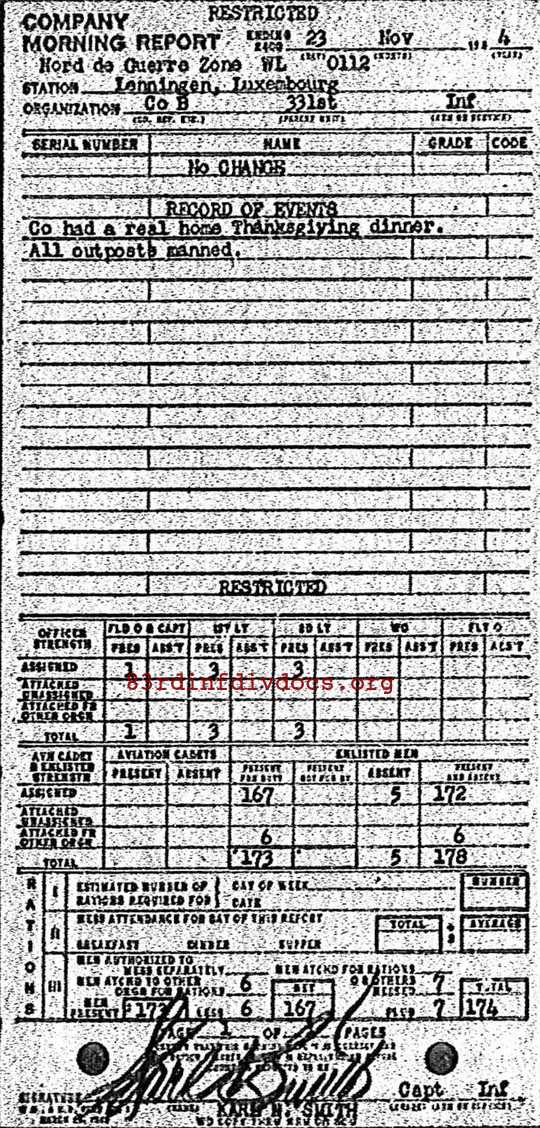 RESTRICTED
COMPANY
MORNING REPORT ENDING 2400 23 Nov 194 4
(DAY) (MONTH) (YEAR)
Nord de Guerre Zone WL 0112
STATION Lenningen, Luxembourg
ORGANIZATION Co B 331st Inf
(PARENT UNIT) (ARM OR SERVICE)
SERIAL NUMBER NAME GRADE CODE
No CHANGE
RECORD OF EVENTS
Co had a real home Thanksgiving dinner.
All outposts manned.
RESTRICTED
OFFICER STRENGTH FLD O & CAPT 1ST LT 2D LT WO FLT O
PRES ABS'T PRES ABS'T PRES ABS'T PRES ABS'T PRES ABS'T
ASSIGNED 1 3 3
83rdinfdivdocs.org
ATTACHED UNASSIGNED
ATTACHED FR OTHER ORGN
TOTAL 1 3 3
AVN CADET & ENLISTED STRENGTH AVIATION CADETS ENLISTED MEN
PRESENT ABSENT PRESENT FOR DUTY PRESENT NOT FOR DY ABSENT PRESENT AND ABSENT
ASSIGNED 167 5 172
ATTACHED UNASSIGNED
ATTACHED FR OTHER ORGN 6 6
TOTAL 173 5 178
RATIONS
I ESTIMATED NUMBER OF RATIONS REQUIRED FOR DAY OF WEEK DATE NUMBER
II MESS ATTENDANCE FOR DAY OF THIS REPORT TOTAL ÷ 3 AVERAGE
BREAKFAST DINNER SUPPER
III MEN AUTHORIZED TO MESS SEPARATELY MEN ATCHD FOR RATIONS
MEN ATCHD TO OTHER ORGN FOR RATIONS 6 NET OTHERS MESSED 7 TOTAL
MEN PRESENT 173 LESS 6 167 PLUS 7 174
PAGE 1 OF PAGES
SIGNATURE Karl N. Smith Capt Inf
KARL N. SMITH